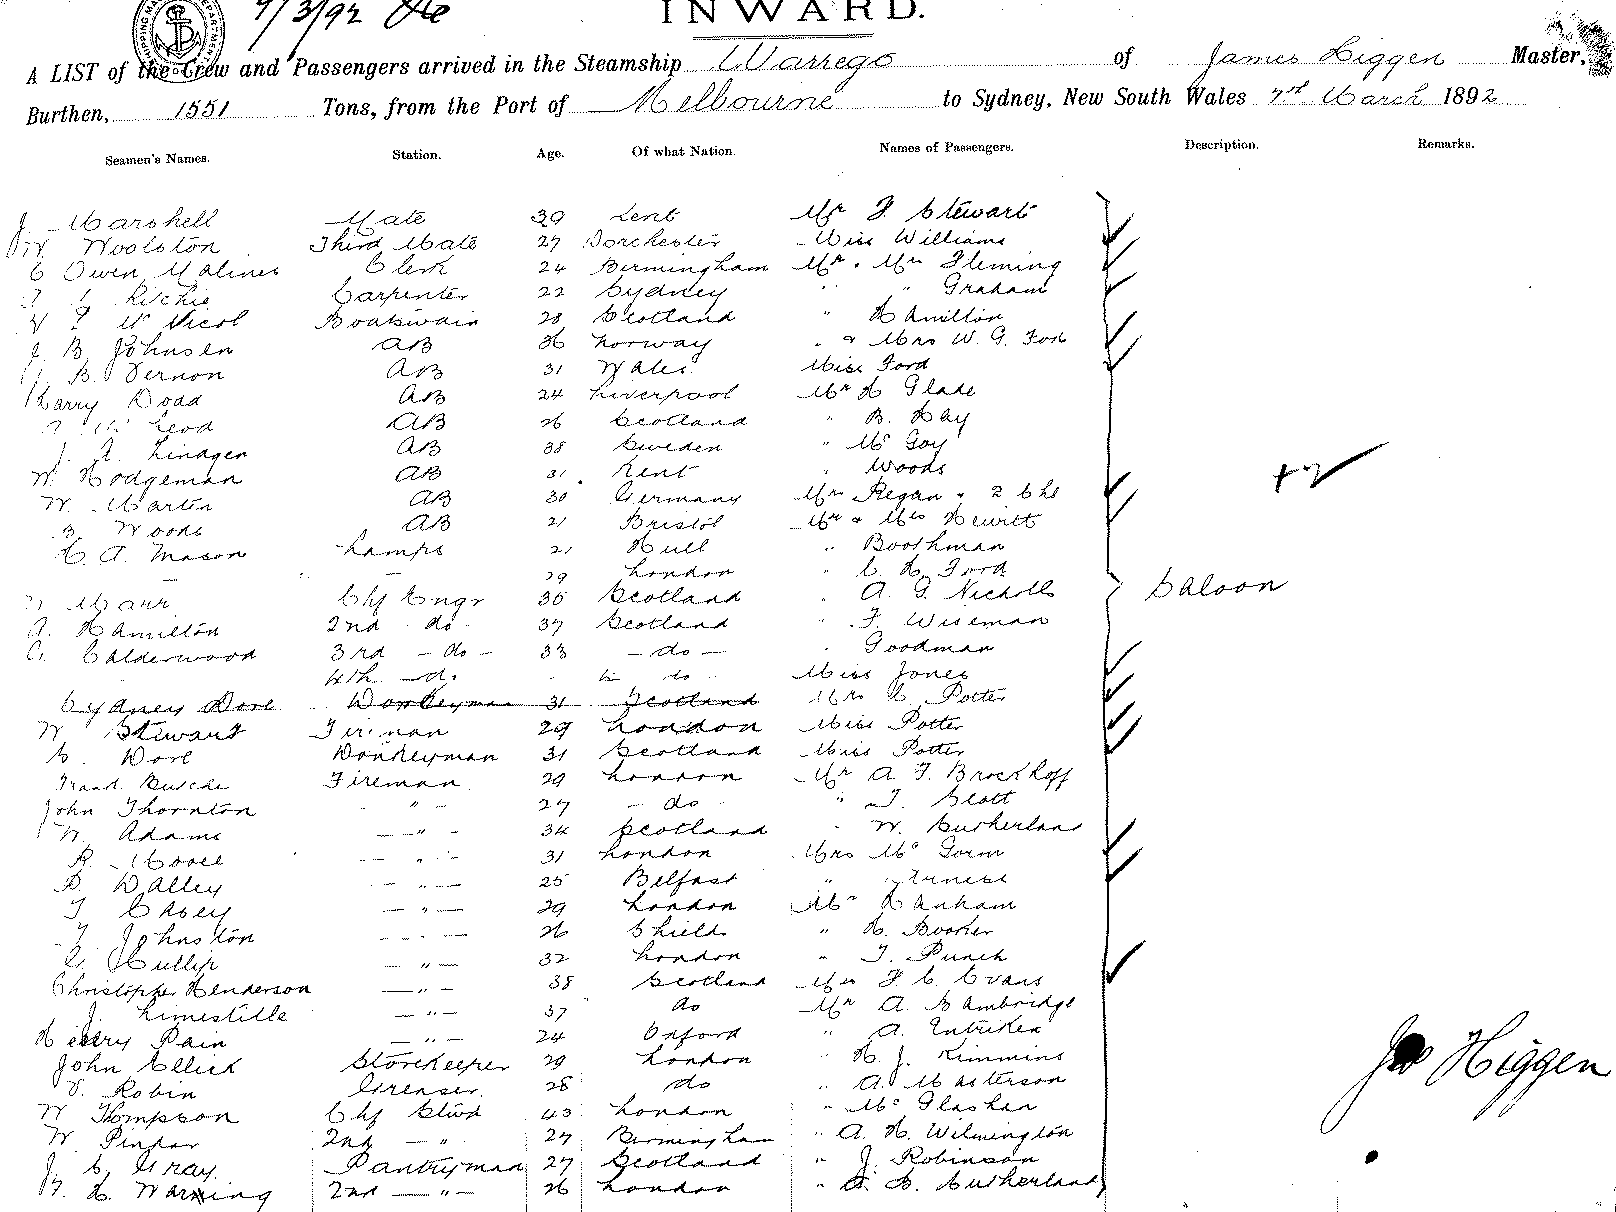 7/3/92
INWARD.
A LIST of the Crew and Passengers arrived in the Steamship Warrego of James Higgen Master,
Burthen, 1551 Tons, from the Port of Melbourne to Sydney, New South Wales 7th March 1892
Seamen's Names. Station. Age. Of what Nation. Names of Passengers. Description. Remarks.
J. Marshell Mate 39 Kent Mr F Stewart
W. Woolston Third Mate 27 Dorchester Miss Williams
C Owen Malines Clerk 24 Birmingham Mr & Mrs Fleming
Ritchie Carpenter 22 Sydney " " Graham
Mc Nicol Boatswain 28 Scotland " Hamilton
J. B. Johnsen AB 36 Norway " & Mrs W. G. Ford
B. Vernon AB 31 Wales Miss Ford
Harry Dodd AB 24 Liverpool Mr H Glade
Mc Leod AB 26 Scotland " B. Hay
J. A. Lindgen AB 38 Sweden " Mc Goy
W. Hodgeman AB 31 Kent " Woods
W. Martin AB 30 Germany Mrs Regan & 2 Chs
Woods AB 21 Bristol Mr & Mrs Hewitt
C. A. Mason Lamps 21 Hull " Boothman
29 London " C. H. Ford
Marr Chf Engr 36 Scotland " A. G. Nicholls Saloon
A. Hamilton 2nd do 37 Scotland " F. Wiseman
A. Calderwood 3rd - do - 33 - do - " Goodman
4th - do do Miss Jones
Sydney Dove Donkeyman 31 Scotland Mrs C. Potter
W. Stewart Fireman 29 London Miss Potter
S. Dove Donkeyman 31 Scotland Miss Potter
Frank Busche Fireman 29 London Mr A. F. Brockhoff
John Thornton " 27 - do " T. Scott
W. Adams — " - 34 Scotland " W. Sutherland
R. Moore — " - 31 London Mrs Mc Gorm
B. Dalley - " — 25 Belfast " Ernest
T Casey — " — 29 London Mr Hanham
T. Johnston - " - 26 Shields " H. Booker
C. Cullip — " — 32 London " T. Punch
Christopher Henderson — " — 38 Scotland Mrs F. C. Evans
J. Limestille — " — 37 do Mr A. Bambridge
Henry Pain — " — 24 Oxford " A. Entriken
John Ellick Storekeeper 29 London " H. J. Kimmins
V. Robin Greaser 28 do " A. Masterson
W Thompson Chf Stwd 43 London " Mc Glashan
W. Pindar 2nd — " 27 Birmingham " A. H. Wilmington
J. C. Gray Pantryman 27 Scotland " J. Robinson
H. Warning 2nd — " - 26 London " Sutherland
Jas Higgen